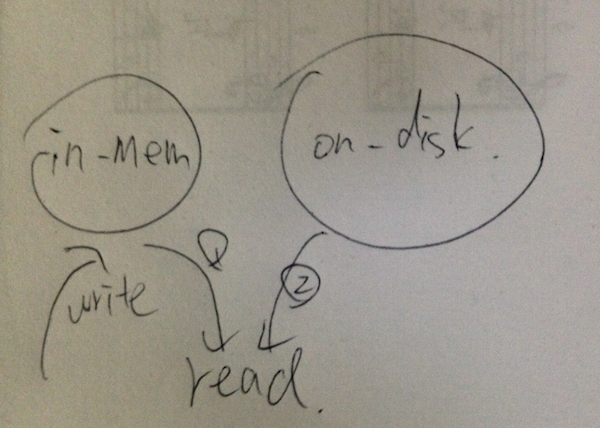 in-mem
on-disk.
①
write
②
read.